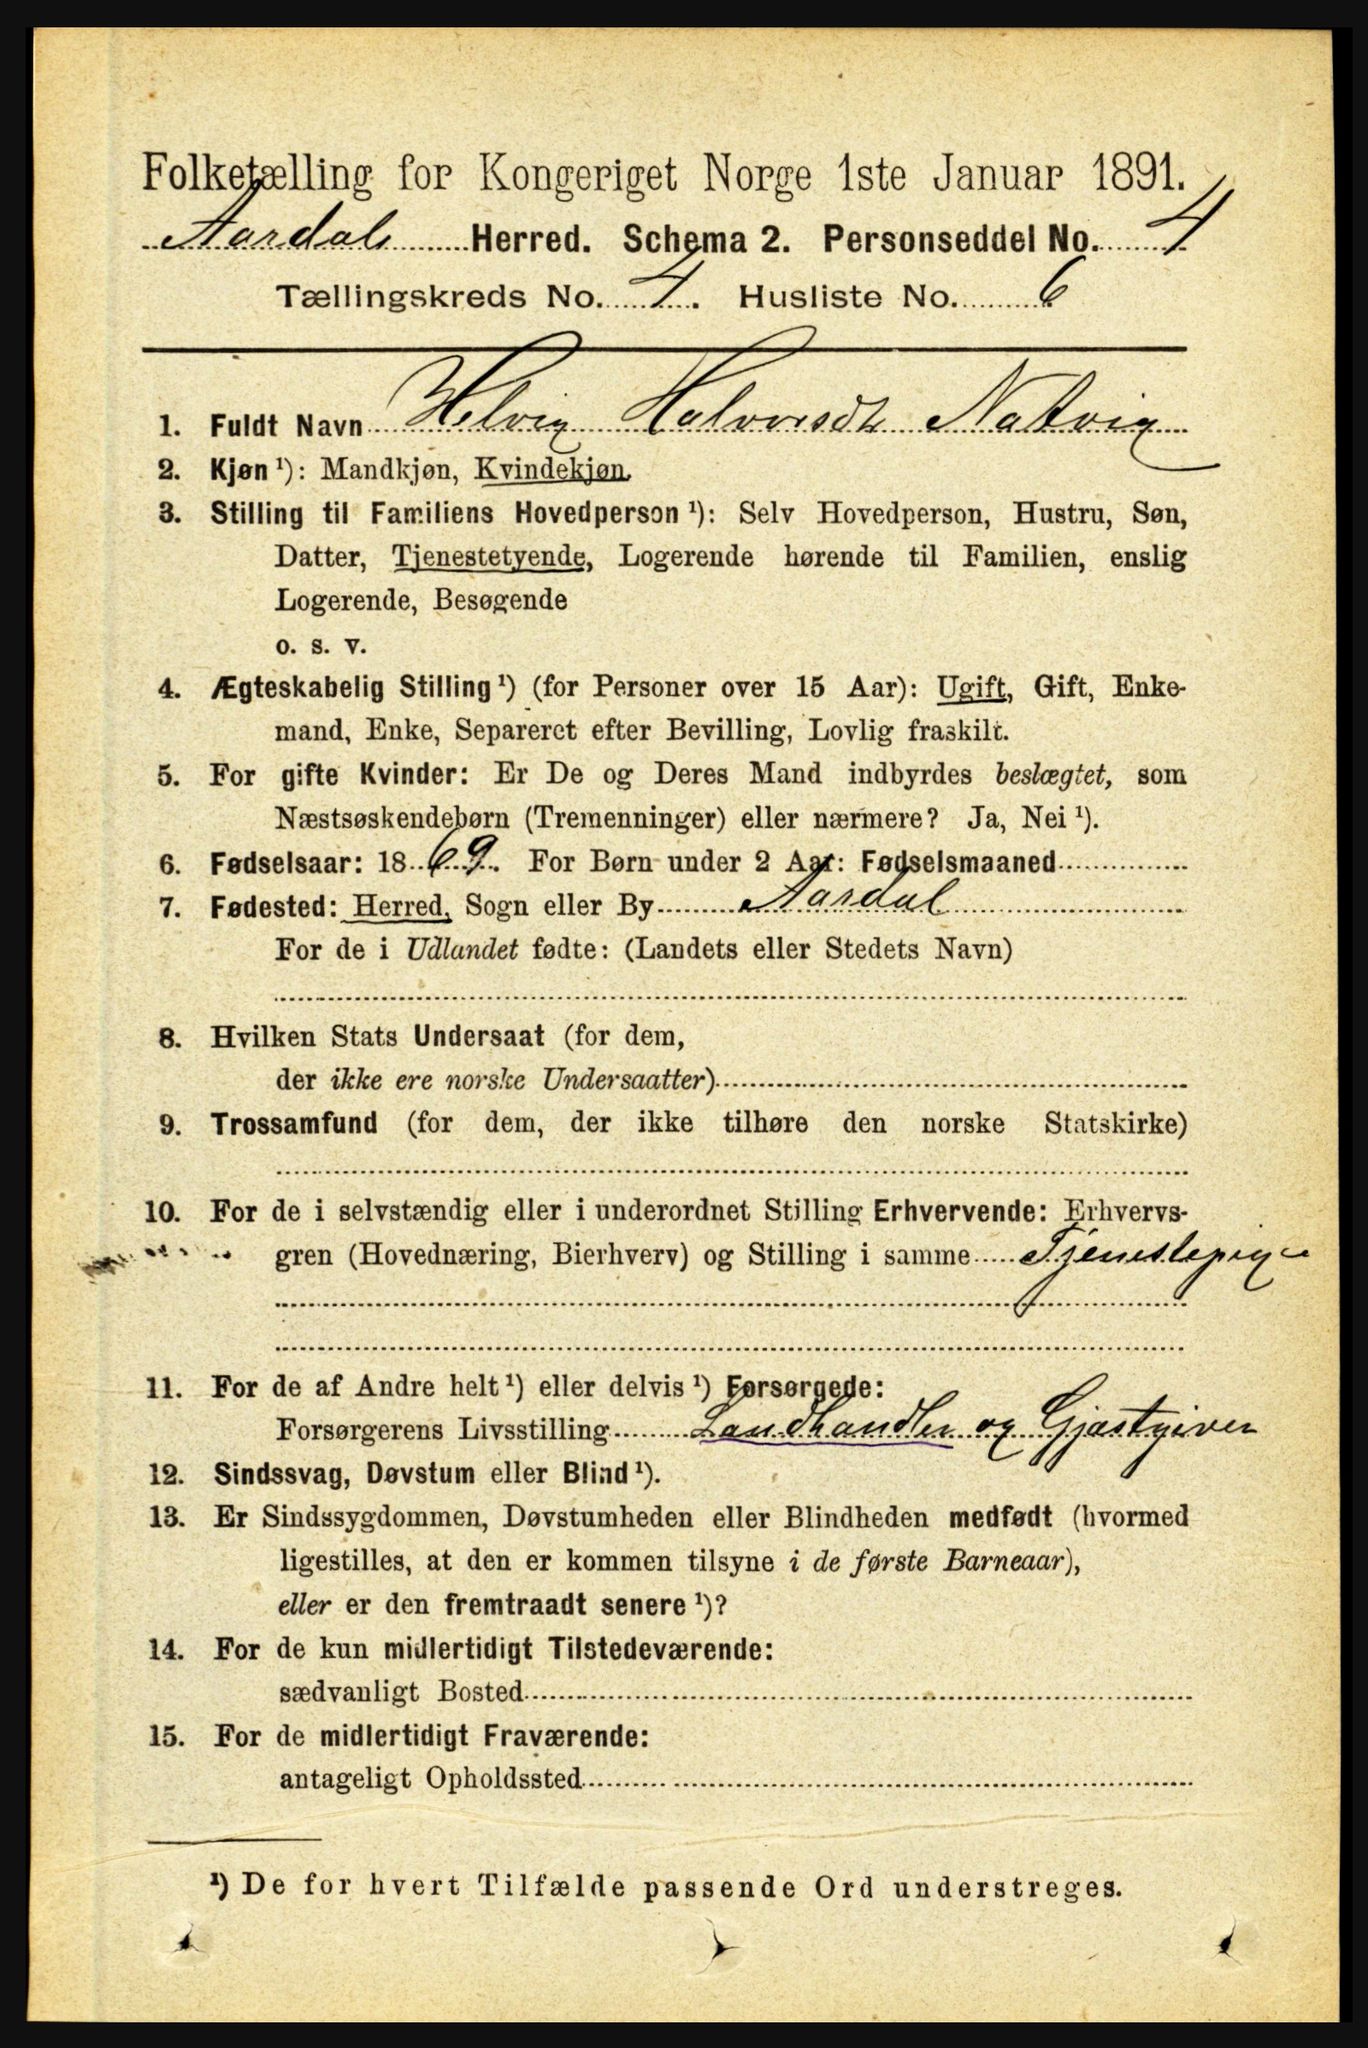 Folketælling for Kongeriget Norge 1ste Januar 1891.
Aardal Herred. Schema 2. Personseddel No. 4
Tællingskreds No. 4. Husliste No. 6
1. Fuldt Navn Helvig Halvorsdt Natvig
2. Kjøn ¹): Mandkjøn, Kvindekjøn.
3. Stilling til Familiens Hovedperson ¹): Selv Hovedperson, Hustru, Søn,
Datter, Tjenestetyende, Logerende hørende til Familien, enslig
Logerende, Besøgende
o. s. v.
4. Ægteskabelig Stilling ¹) (for Personer over 15 Aar): Ugift, Gift, Enke-
mand, Enke, Separeret efter Bevilling, Lovlig fraskilt.
5. For gifte Kvinder: Er De og Deres Mand indbyrdes beslægtet, som
Næstsøskendebørn (Tremenninger) eller nærmere? Ja, Nei ¹).
6. Fødselsaar: 1869. For Børn under 2 Aar: Fødselsmaaned
7. Fødested: Herred, Sogn eller By Aardal
For de i Udlandet fødte: (Landets eller Stedets Navn)
8. Hvilken Stats Undersaat (for dem,
der ikke ere norske Undersaatter)
9. Trossamfund (for dem, der ikke tilhøre den norske Statskirke)
10. For de i selvstændig eller i underordnet Stilling Erhvervende: Erhvervs-
gren (Hovednæring, Bierhverv) og Stilling i samme Tjenestepige
11. For de af Andre helt ¹) eller delvis ¹) Forsørgede:
Forsørgerens Livsstilling Landhandler og Gjæstgiver
12. Sindssvag, Døvstum eller Blind ¹).
13. Er Sindssygdommen, Døvstumheden eller Blindheden medfødt (hvormed
ligestilles, at den er kommen tilsyne i de første Barneaar),
eller er den fremtraadt senere ¹)?
14. For de kun midlertidigt Tilstedeværende:
sædvanligt Bosted
15. For de midlertidigt Fraværende:
antageligt Opholdssted
¹) De for hvert Tilfælde passende Ord understreges.